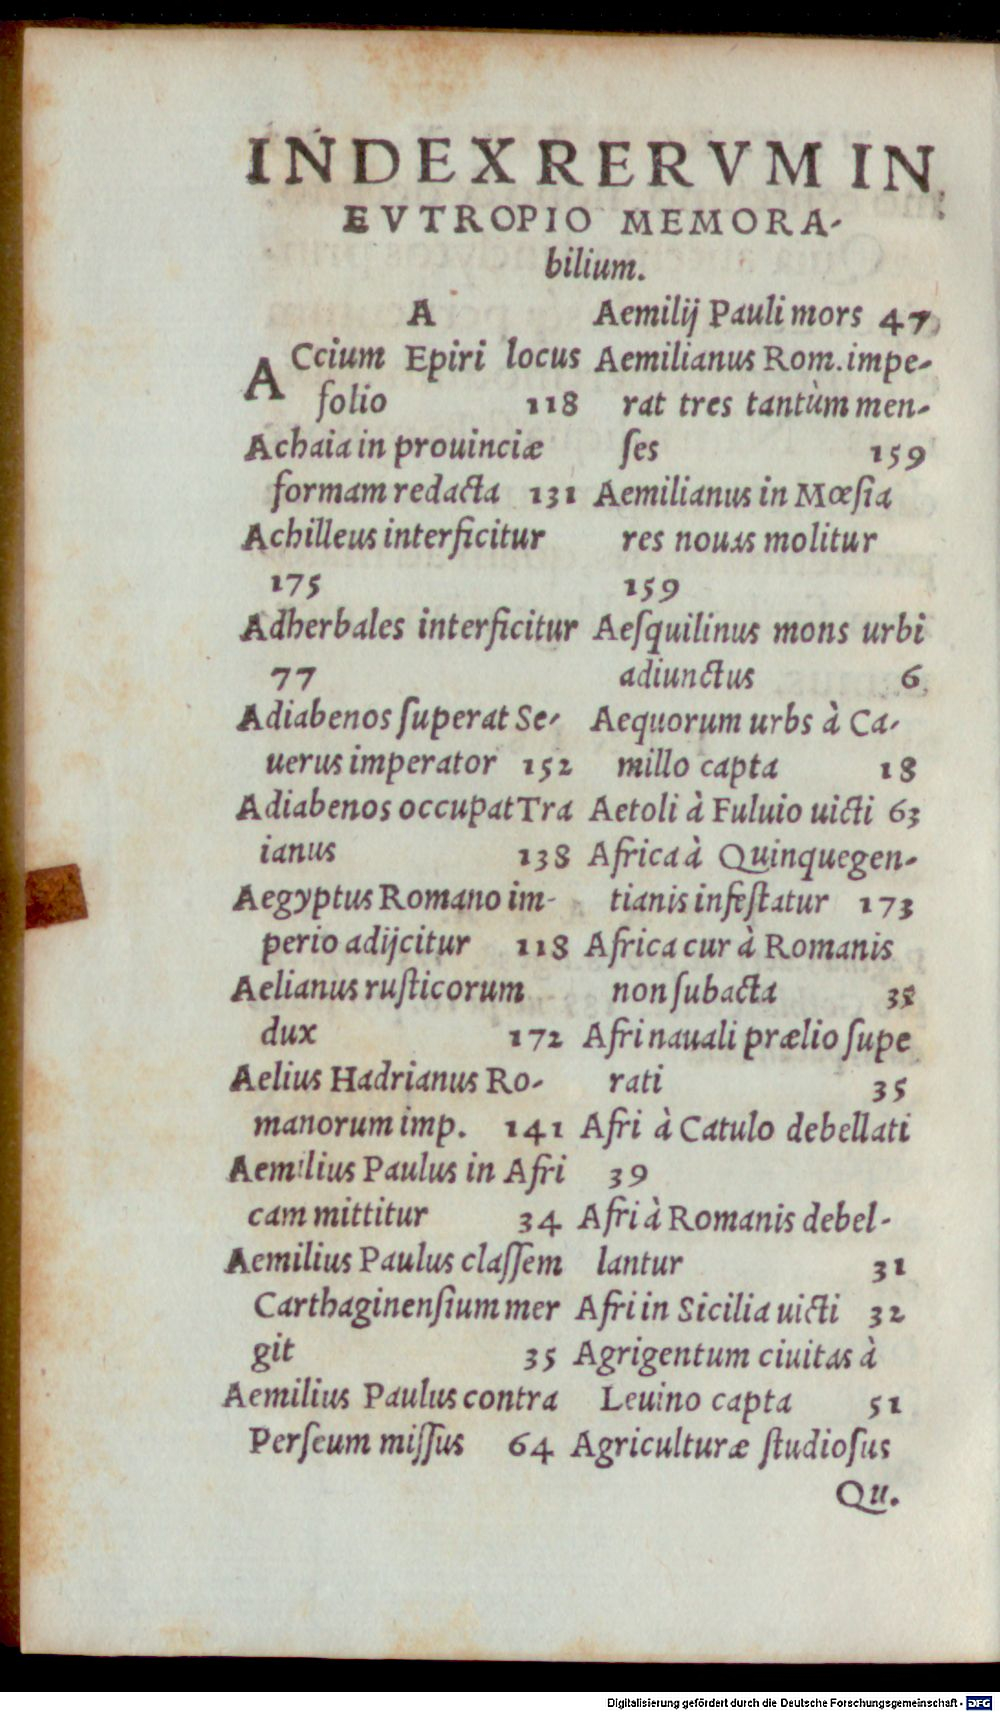 INDEX RERVM IN
EVTROPIO MEMORA-
bilium.
A
ACcium Epiri locus
folio 118
Achaia in prouinciæ
formam redacta 131
Achilleus interficitur
175
Adherbales interficitur
77
Adiabenos ſuperat Se-
uerus imperator 152
Adiabenos occupat Tra
ianus 138
Aegyptus Romano im-
perio adijcitur 118
Aelianus ruſticorum
dux 172
Aelius Hadrianus Ro-
manorum imp. 141
Aemilius Paulus in Afri
cam mittitur 34
Aemilius Paulus claſſem
Carthaginenſium mer
git 35
Aemilius Paulus contra
Perſeum miſſus 64
Aemilij Pauli mors 47
Aemilianus Rom. impe-
rat tres tantùm men-
ſes 159
Aemilianus in Mœſia
res nouas molitur
159
Aeſquilinus mons urbi
adiunctus 6
Aequorum urbs à Ca-
millo capta 18
Aetoli à Fuluio uicti 63
Africa à Quinquegen-
tianis infeſtatur 173
Africa cur à Romanis
non ſubacta 38
Afri nauali prælio ſupe
rati 35
Afri à Catulo debellati
39
Afri à Romanis debel-
lantur 31
Afri in Sicilia uicti 32
Agrigentum ciuitas à
Leuino capta 51
Agriculturæ ſtudioſus
Qu.
Digitalisierung gefördert durch die Deutsche Forschungsgemeinschaft - DFG